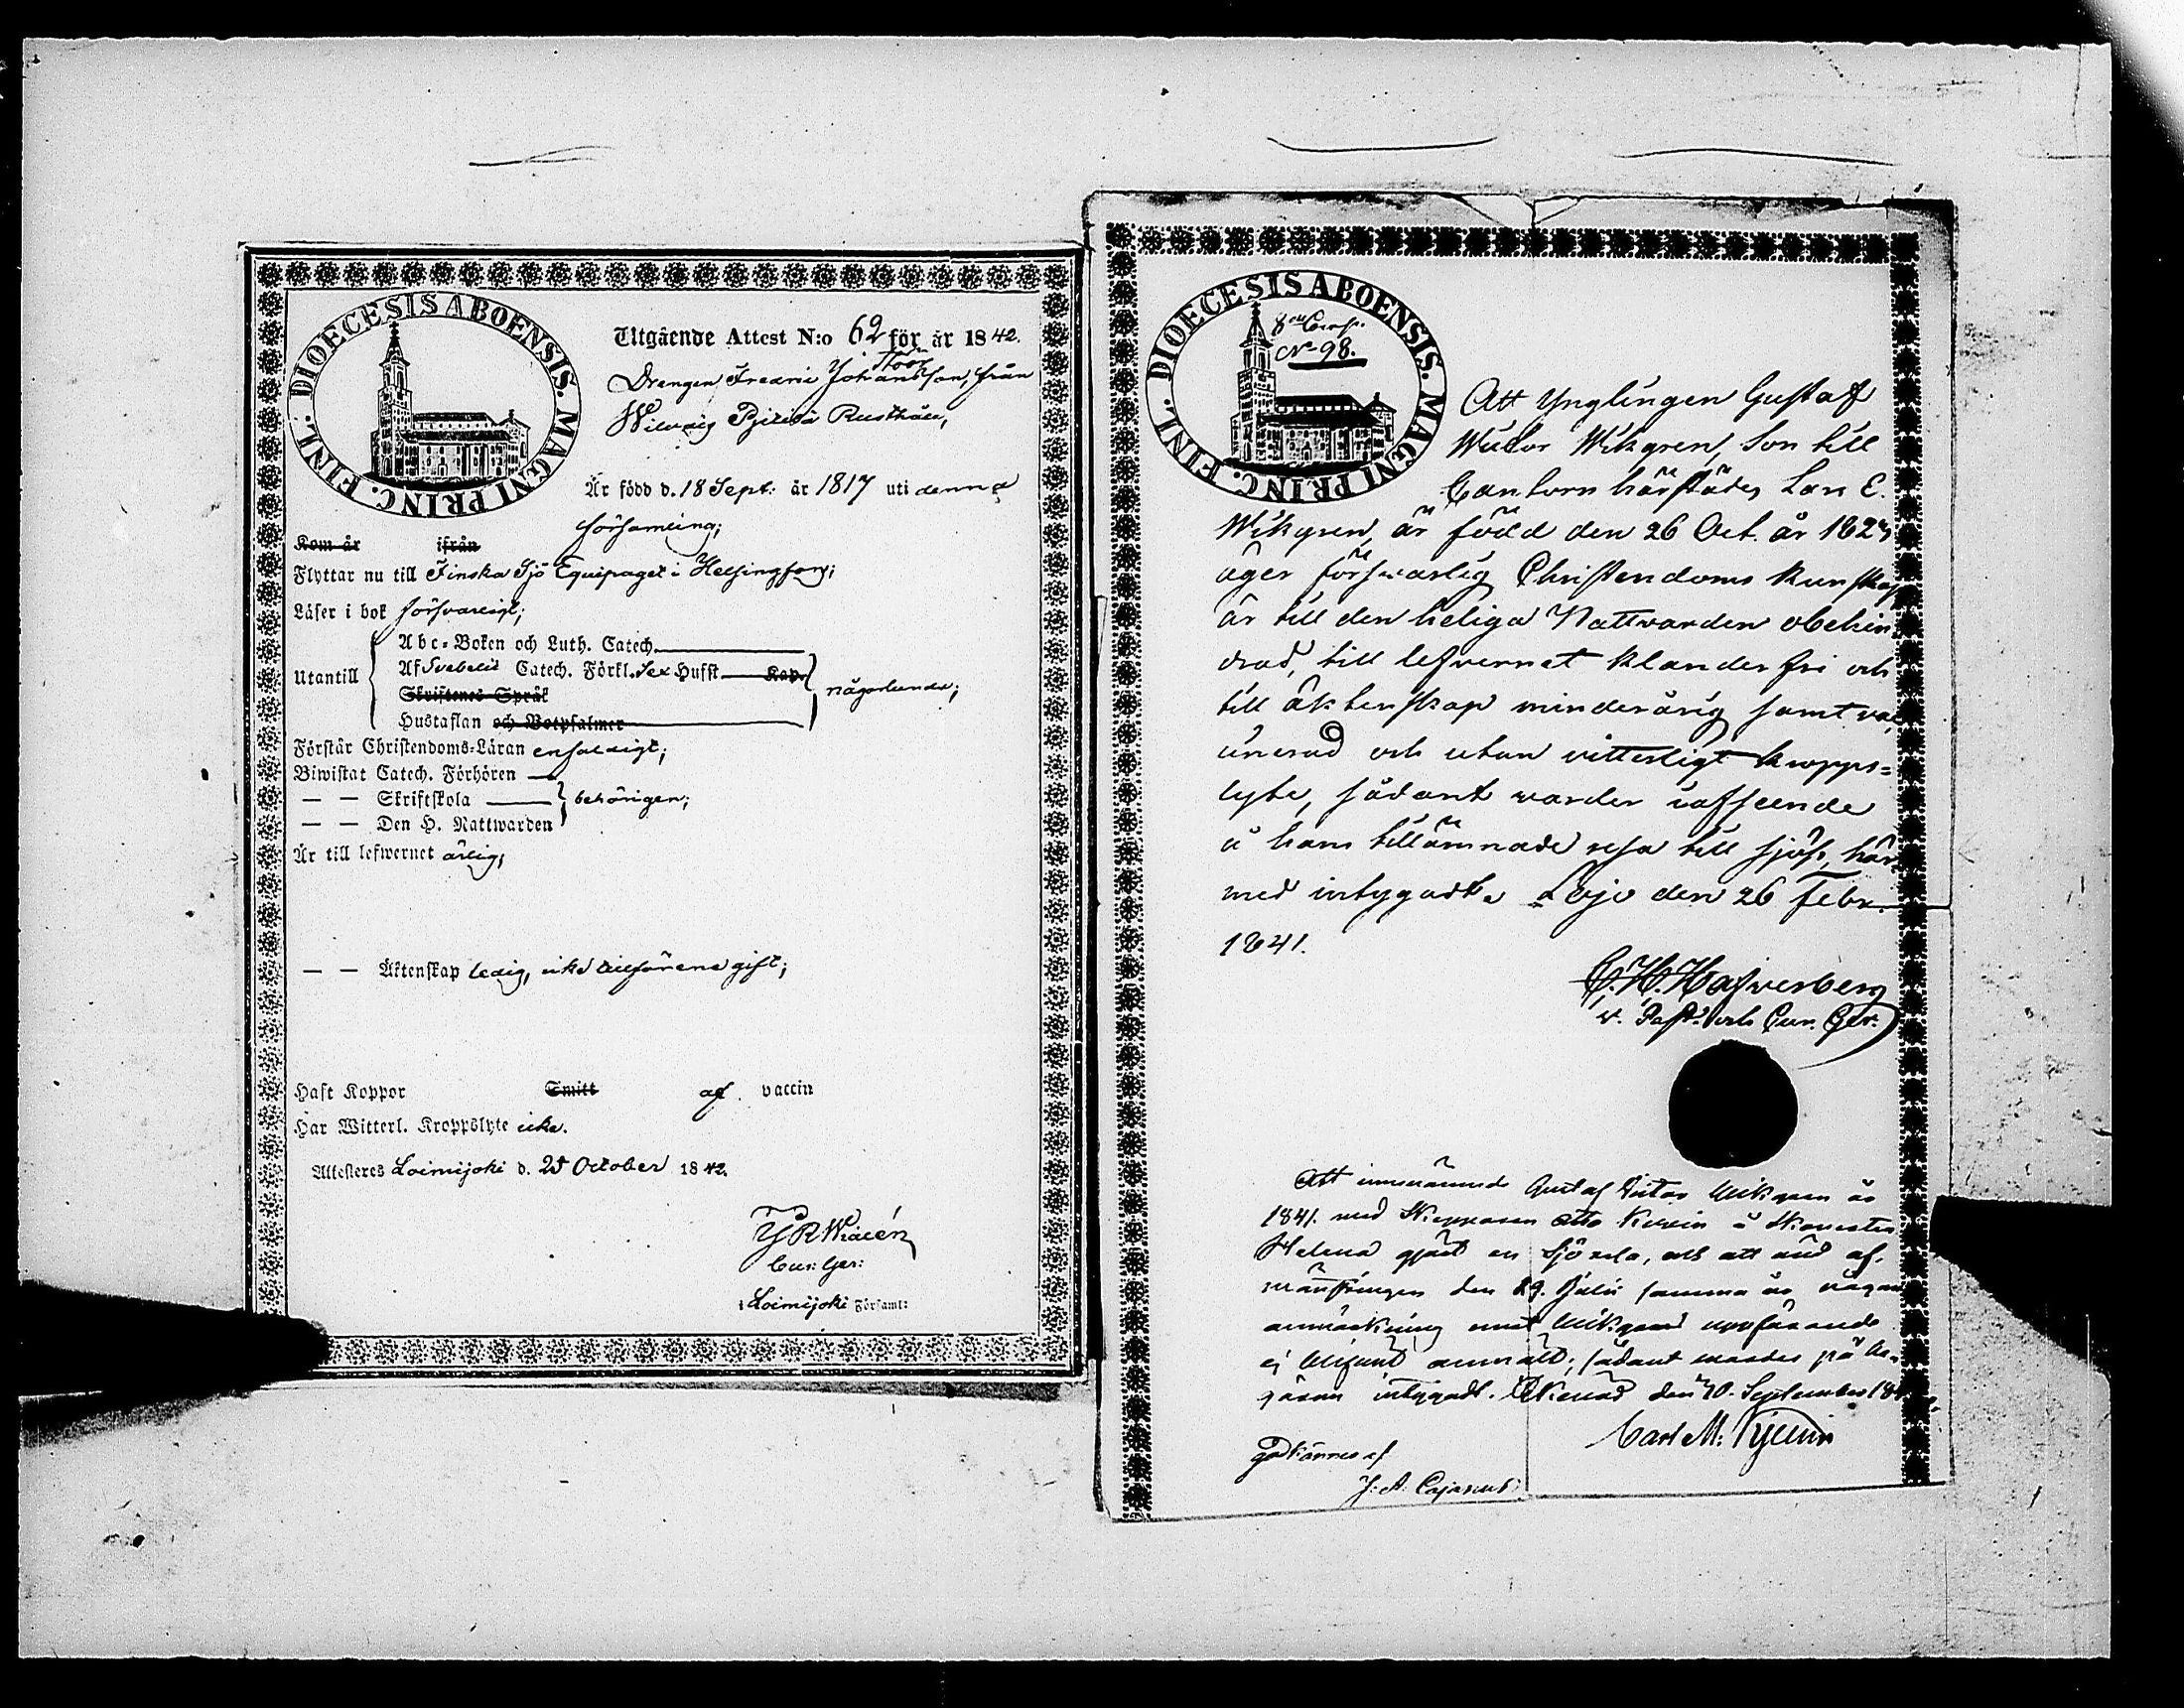 DIOECESIS ABOENSIS. MAGNI PRINC. FINL.
Utgående Attest N:o 62 för år 1842.
Drengen Fredric Johansson, från
Rusthåll,
Är född d. 18 Sept: år 1817 uti denna
församling;
Kom år ifrån
Flyttar nu till Finska Sjö Equipaget i Helsingfors;
Läser i bok försvarligt;
Utantill
Abc-Boken och Luth. Catech.
Af Svebelii Catech. Förkl. Sex Hufst Kap.
någorlunda;
Skriftenes Språk
Hustaflan och Botpsalmer
Förstår Christendoms-Läran enfaldigt;
Biwistat Catech. Förhören
— — Skriftskola behörigen;
— — Den H. Nattwarden
Är till lefwernet ärlig;
— — Äktenskap ledig, icke tillförene gift;
Haft Koppor Smitt af vaccin
Har Witterl. Kroppslyte icke.
Attesteres Loimijoki d. 25 October 1842.
Cur: Ger:
i Loimijoki Församl:
DIOECESIS ABOENSIS. MAGNI PRINC. FINL.
No 98.
Att Ynglingen Gustaf
Victor Wikgren, Son till
Cantorn härstädes Lars E.
Wikgren, är född den 26 Oct. år 1823
äger försvarlig Christendoms kunskap
är till den heliga Nattvarden obehin
drad, till lefvernet klanderfri och
till äktenskap minderårig samt vac
cinerad och utan vitterligt kropps=
lyte, sådant warder i afseende
å hans tillämnade resa till sjöss, här
med intygadt. Lojo den 26 Febr.
1841.
C. H. Hasverberg
v. Past. och Cur. Ger.
Att innenämnde Gustaf Victor Wikgren år
1841. med Skepparen Otto å Skonerten
Helena gjort en Sjöresa, och att vid af-
mönstringen den 29. Julii samma år någon
anmärkning emot Wikgrens uppförande
ej blifvit anmält; sådant warder på be-
gäran intygadt. Ekenäs den 10. September 184
Carl M. Kjellin
godkännes af
J. A. Cajanus